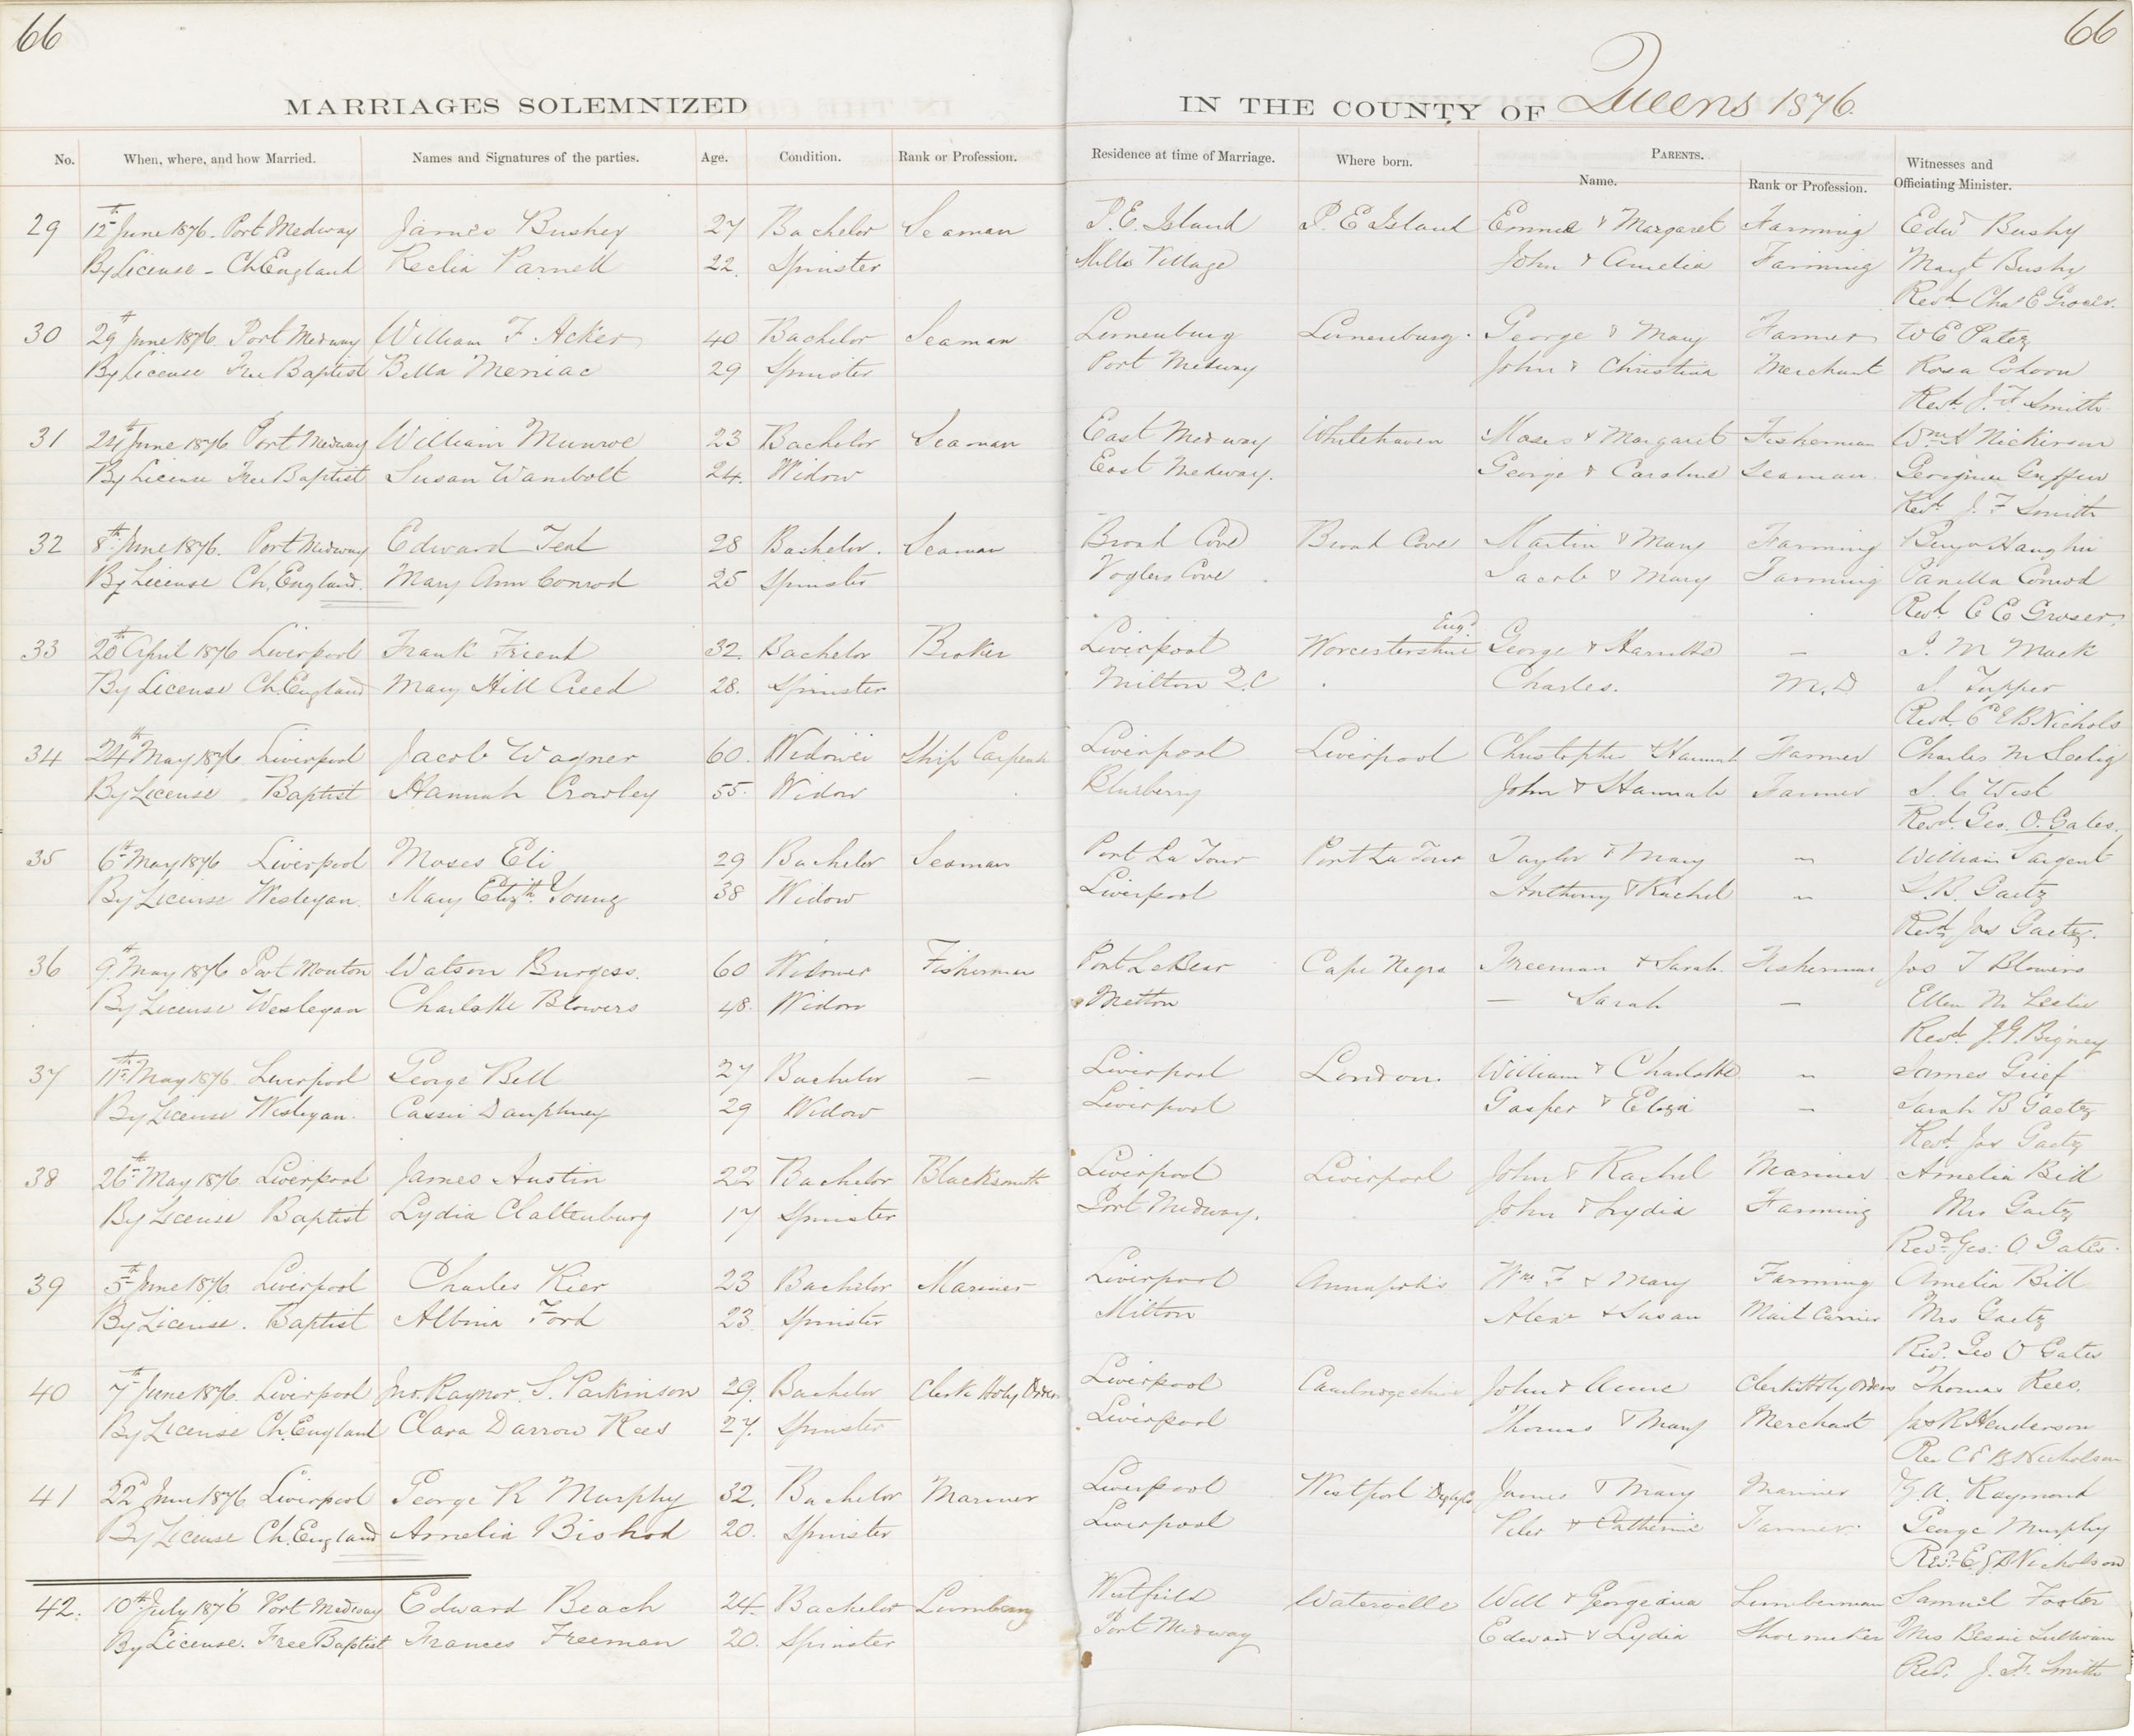 66
66
MARRIAGES SOLEMNIZED IN THE COUNTY OF Queens 1876.
No. When, where, and how Married. Names and Signatures of the parties. Age. Condition. Rank or Profession. Residence at time of Marriage. Where born. PARENTS. Name. Rank or Profession. Witnesses and Officiating Minister.
29 12th June 1876. Port Medway James Bushey 27 Bachelor Seaman P. E. Island P. E Island & Margaret Farming Edwd Bushy
By License - Ch England Parnell 22. Spinster Mills Village John & Amelia Farming Margt Bushy
Revd Chas E Groser.
30 29th June 1876. Port Medway William F Acker 40 Bachelor Seaman Lunenburg Lunenburg. George & Mary Farmer W E
By License Free Baptist Bella Meniac 29 Spinster Port Medway John & Christina Merchant Rosa Cohoon
Revd. J. F. Smith
31 24th June 1876 Port Medway William Munroe 23 Bachelor Seaman East Medway Whitehaven Moses & Margaret Fisherman Wm Nickerson
By License Free Baptist Susan Wambolt 24. Widow East Medway. George & Caroline Seaman.
Revd. J. F Smith
32 8th June 1876. Port Medway Edward Teal 28 Bachelor. Seaman Broad Cove Broad Cove Martin & Mary Farming
By License Ch. England. Mary Ann Conrod 25 Spinster Voglers Cove Jacob & Mary Farming Conrod
Revd. C E Groser.
33 20th April 1876 Liverpool Frank Friend 32 Bachelor Broker Liverpool Worcestershire Engd George & - J. M Mack
By License Ch. England Mary Hill Creed 28. Spinster Milton Q.C Charles. M.D J. Tupper
Revd. C E B Nichols
34 24th May 1876 Liverpool Jacob Wagner 60. Widower Ship Carpenter Liverpool Liverpool Christopher & Hannah Farmer Charles M Seelig
By License Baptist Hannah Crowley 55. Widow Blueberry John & Hannah Farmer S. C West
Revd. Geo. O. Gates.
35 6th May 1876 Liverpool Moses Eli 29 Bachelor Seaman Port La Tour Port La Tour Taylor & Mary - William Sargent
By License Wesleyan. Mary Elizth. Young 38 Widow Liverpool Anthony & Rachel - S. B. Gaetz
Revd. Jos Gaetz.
36 9th May 1876 Port Mouton Watson Burgess. 60 Widower Fisherman Port LeBear Cape Negro Freeman & Sarah. Fisherman Jos T Blowers
By License Wesleyan Charlotte Blowers 48. Widow Metton - Sarah - Ellen M Leslie
Revd. J. G. Bigney
37 11th May 1876. Liverpool George Bell 27 Bachelor - Liverpool London. William & Charlotte - James Grief
By License Wesleyan. Cassie Dauphney 29 Widow Liverpool Gasper & Eliza - Sarah B Gaetz
Revd. Jos Gaetz
38 26th May 1876 Liverpool James Austin 22 Bachelor Blacksmith Liverpool Liverpool John & Rachel Mariner Amelia Bill
By License Baptist Lydia Clattenburg 17 Spinster Port Medway. John & Lydia Farming Mrs Gaetz
Revd. Geo: O Gates.
39 5th June 1876 Liverpool Charles Rier 23 Bachelor Mariner Liverpool Annapolis Wm. F & Mary Farming Amelia Bill
By License. Baptist Albinia Ford 23. Spinster Milton Alexr & Susan Mail Carrier Mrs Gaetz
Revd. Geo O Gates
40 7th June 1876. Liverpool Jno. Raynor. S. Parkinson 29. Bachelor Clerk Holy Orders Liverpool Cambridgeshire John & Anne Clerk Holy Orders Thomas Rees.
By License Ch. England Clara Darrow Rees 27. Spinster Liverpool Thomas & Mary Merchant Jas R Henderson
Rev C E B Nicholson
41 22d June 1876 Liverpool George R Murphy 32. Bachelor Mariner Liverpool Westport Digby Co James & Mary Mariner Y. A. Raymond
By License Ch. England Amelia Bishop 20. Spinster Liverpool Peter & Catherine Farmer. George Murphy
Revd. E. B Nicholson
42. 10th July 1876 Port Medway Edward Beach 24. Bachelor Westfield Waterville Will & Georgeina Lumberman Samuel Foster
By License. Free Baptist Frances Freeman 20. Spinster Port Medway Edward & Lydia Shoemaker Mrs Bessie Sullivan
Revd. J. F. Smith